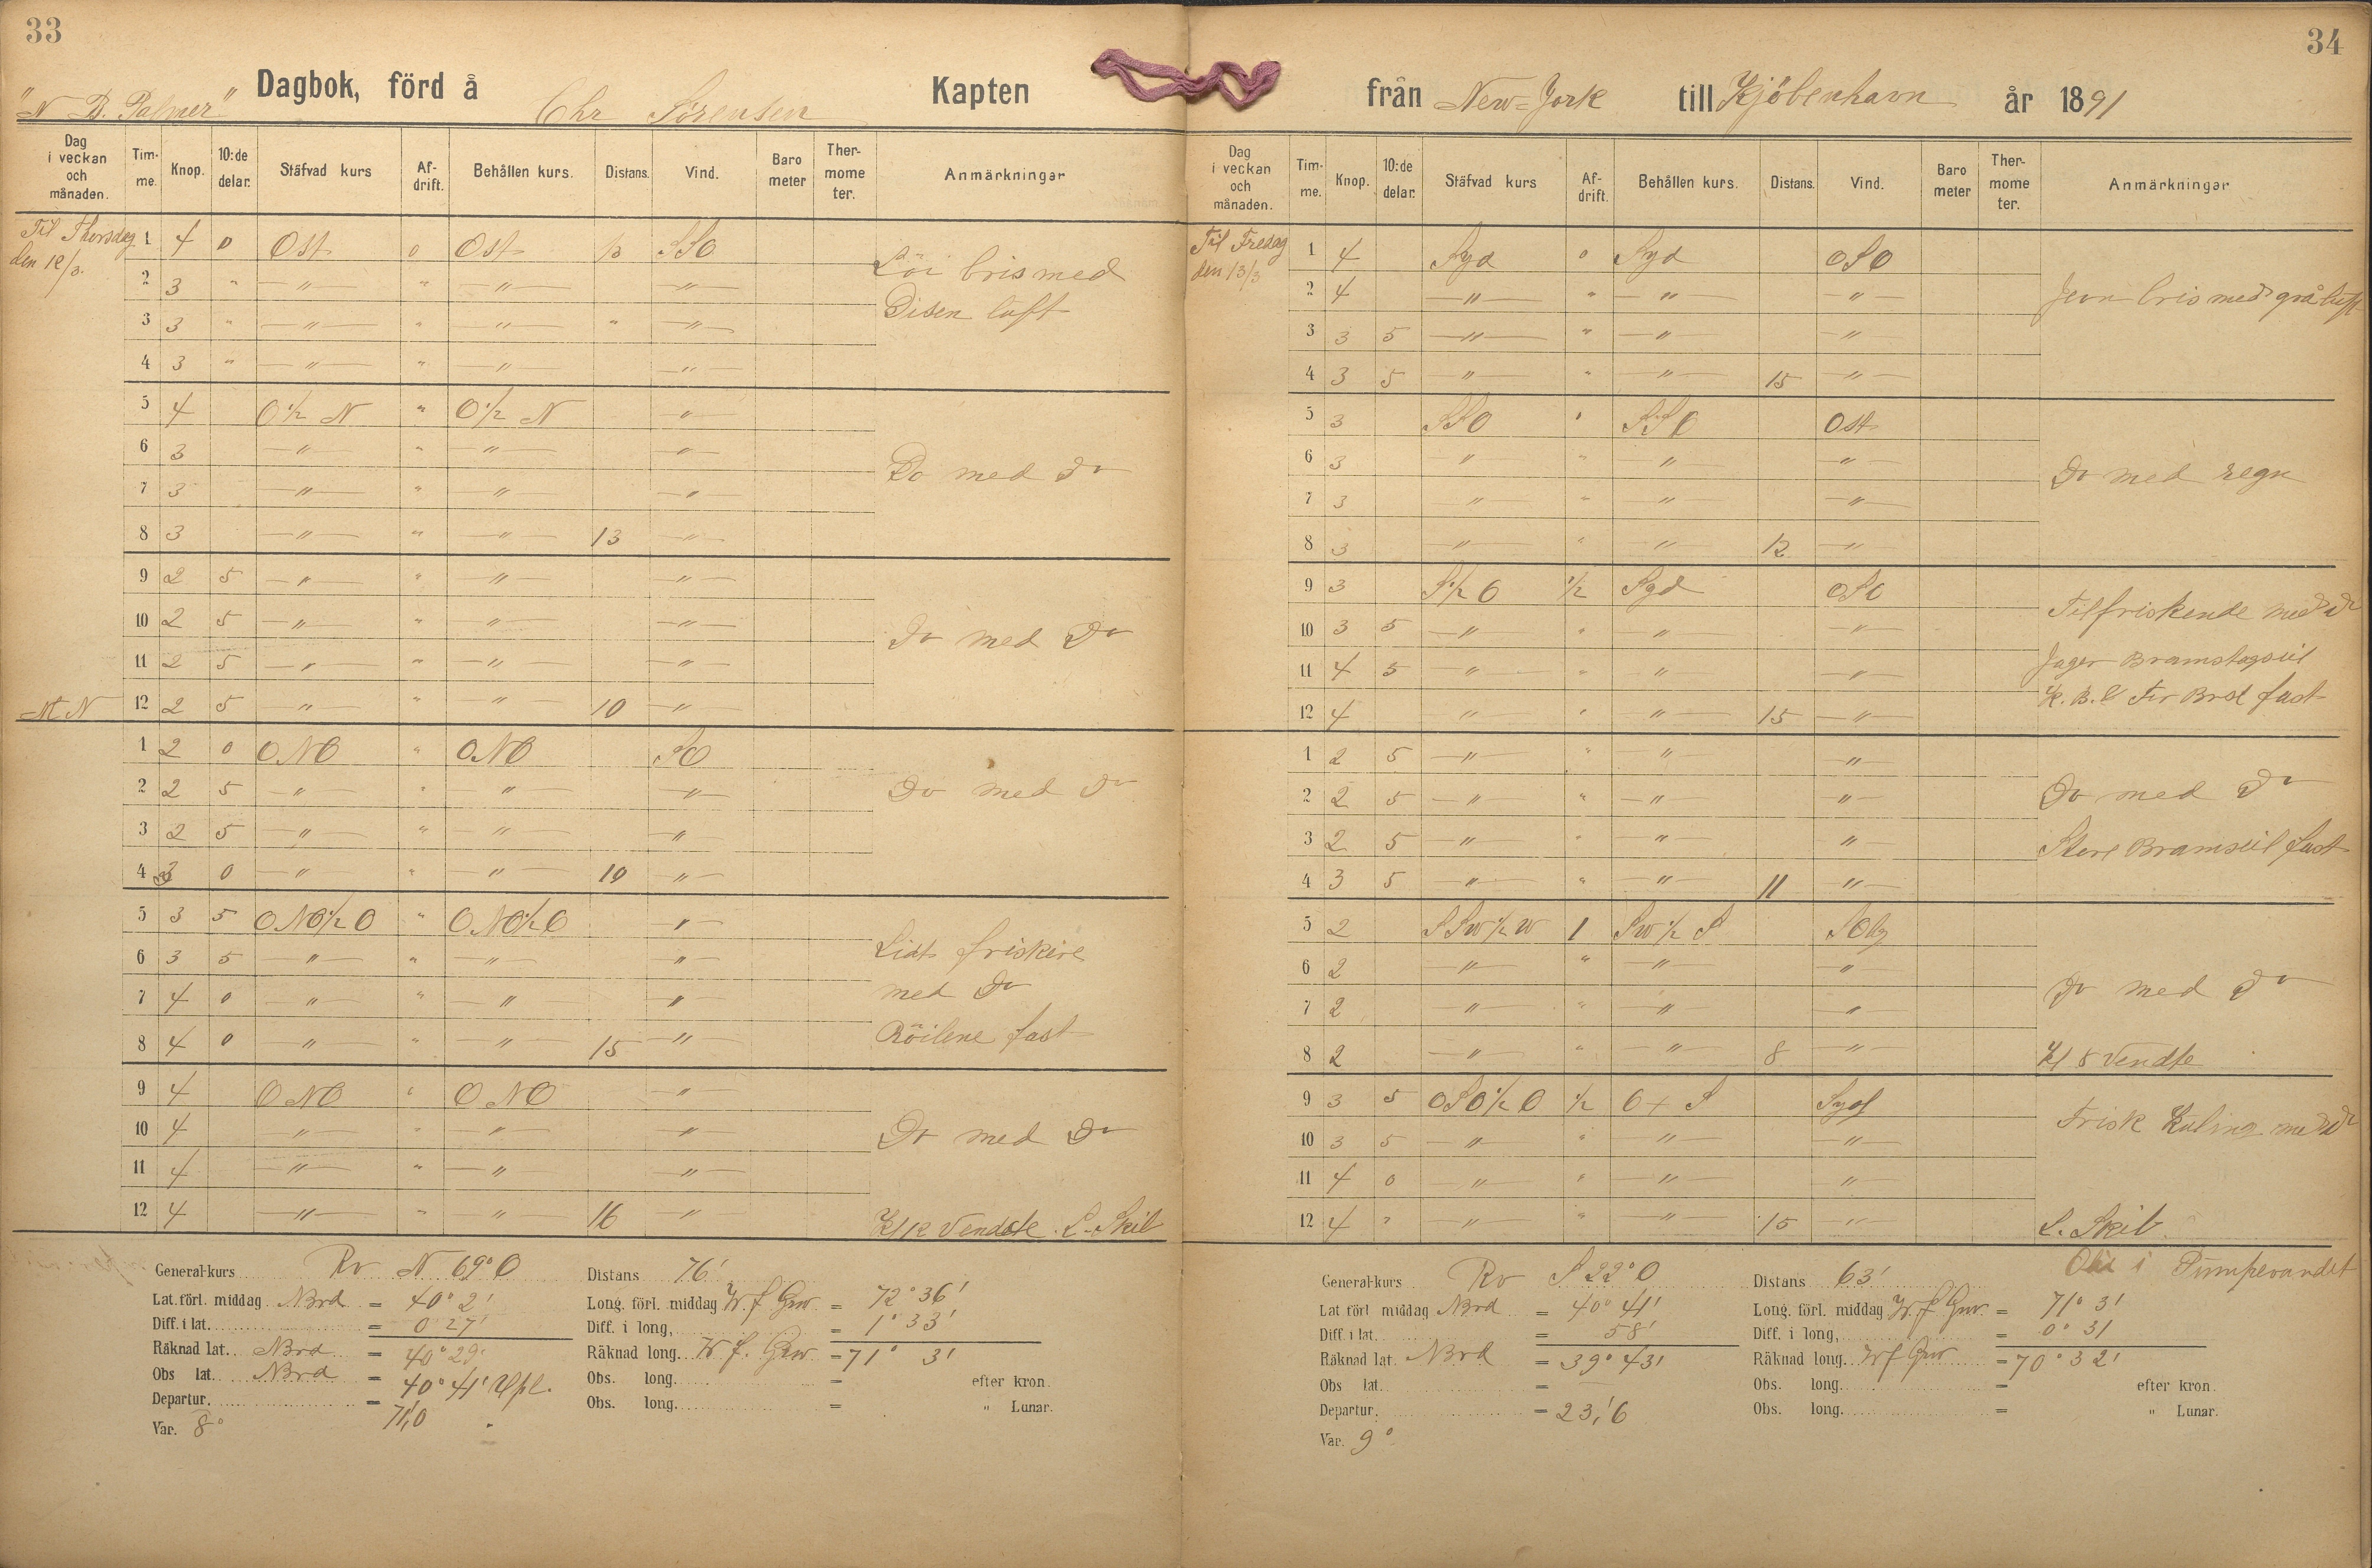 33
"N B. Palmer" Dagbok, förd å Chr Sørensen Kapten
Dag i veckan och månaden. Tim-me. Knop. 10:de delar. Stäfvad kurs Af-drift. Behållen kurs. Distans. Vind. Baro meter Ther-mome ter. Anmärkningar
Til Thorsdag den 12/3.
1 4 0 Ost 0 Ost SSO
2 3 " — " — " — " — — " —
3 3 " — " — " — " — " — " —
4 3 " — " — " — " — — " —
Löi bris med
Disen luft
5 4 O ½ N " O ½ N "
6 3 — " — " — " — — " —
7 3 — " — " — " — — " —
8 3 — " — " — " — 13 — " —
Do med Do
9 2 5 — " — " — " — — " —
10 2 5 — " — " — " — — " —
11 2 5 — " — " — " — — " —
M N 12 2 5 — " — " — " — 10 — " —
Do med Do
1 2 0 ONO " ONO SO
2 2 5 — " — " — " — — " —
3 2 5 — " — " — " — — " —
4 3 0 — " — " — " — 10 — " —
Do med Do
5 3 5 ONO½O " ONO½O — " —
6 3 5 — " — " — " — — " —
7 4 0 — " — " — " — — " —
8 4 0 — " — " — " — 15 — " —
Lidt friskere
med Do
Röilene fast
9 4 ONO " ONO — " —
10 4 — " — " — " — — " —
11 4 — " — " — " — — " —
12 4 — " — " — " — 16 — " —
Do med Do
Kl 12 Vendte. L. Skib
General-kurs Rv N 69° O Distans 76'
Lat. förl. middag Nbrd = 40° 2' Long. förl. middag W. f Grw. = 72° 36'
Diff. i lat. = 0 27' Diff. i long. = 1° 33'
Räknad lat. Nbrd = 40° 29' Räknad long. W. f. Grw = 71° 3'
Obs lat. Nbrd = 40° 41' Obs. long. = efter kron.
Departur. = 71,'0 Obs. long. = " Lunar.
Var. 8°
34
från New=York till Kjöbenhavn år 1891
Dag i veckan och månaden. Tim-me. Knop. 10:de delar. Stäfvad kurs Af-drift. Behållen kurs. Distans. Vind. Baro meter Ther-mome ter. Anmärkningar
Til Fredag den 13/3
1 4 Syd 0 Syd OSO
2 4 — " — " — " — — " —
3 3 5 — " — " — " — — " —
4 3 5 — " — " — " — 15 — " —
Jevn bris med grå luft
5 3 SSO " SSO Ost
6 3 — " — " — " — — " —
7 3 — " — " — " — — " —
8 3 — " — " — " — 12 — " —
Do med regn
9 3 S½O ½ Syd OSO
10 3 5 — " — " — " — — " —
11 4 5 — " — " — " — — " —
12 4 — " — " — " — 15 — " —
Tilfriskende med Do
Jager Bramstagseil
fast
1 2 5 — " — " — " — — " —
2 2 5 — " — " — " — — " —
3 2 5 — " — " — " — — " —
4 3 5 — " — " — " — 11 — " —
Do med Do
Store Bramseil fast
5 2 SSW½W 1 SW½S
6 2 — " — " — " — — " —
7 2 — " — " — " — — " —
8 2 — " — " — " — 8 — " —
Do med Do
Kl 8 Vendte
9 3 5 OSO½O ½ O + S Syd
10 3 5 — " — " — " — — " —
11 4 0 — " — " — " — — " —
12 4 " — " — " — " — 15 — " —
Frisk Kuling med Do
L. Skib.
i Pumpevandet
General-kurs Rv S 22° O Distans 63'
Lat förl middag Nbrd = 40° 41' Long. förl. middag W. f Grw. = 71° 3'
Diff. i lat. = 58' Diff. i long. = 0° 31
Räknad lat. Nbrd = 39° 43' Räknad long. W f Grw = 70° 32'
Obs lat. = — Obs. long. = efter kron.
Departur. = 23,'6 Obs. long. = " Lunar.
Var. 9°